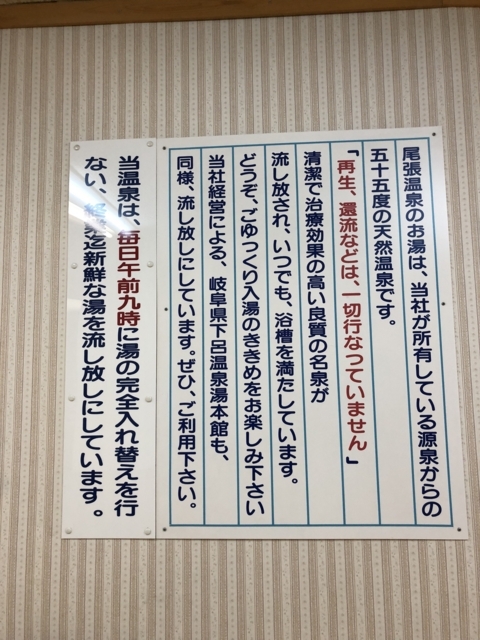 尾張温泉のお湯は、当社が所有している源泉からの
五十五度の天然温泉です。
「再生、還流などは、一切行なっていません」
清潔で治療効果の高い良質の名泉が
流し放され、いつでも、浴槽を満たしています。
どうぞ、ごゆっくり入湯のききめをお楽しみ下さい
当社経営による、岐阜県下呂温泉湯本館も、
同様、流し放しにしています。ぜひ、ご利用下さい。
当温泉は、毎日午前九時に湯の完全入れ替えを行
ない、終業迄新鮮な湯を流し放しにしています。